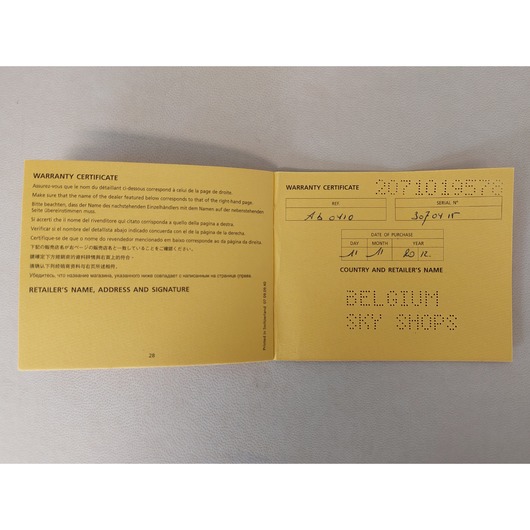 WARRANTY CERTIFICATE
Assurez-vous que le nom du détaillant ci-dessous correspond à celui de la page de droite.
Make sure that the name of the dealer featured below corresponds to that of the right-hand page.
Bitte beachten, dass der Name des nachstehenden Einzelhändlers mit dem Namen auf der nebenstehenden
Seite übereinstimmen muss.
Si accerti che il nome del rivenditore qui citato corrisponda a quello della pagina a destra.
Verificar si el nombre del detallista abajo indicado concuerda con el de la página de la derecha.
Certifique-se de que o nome do revendedor mencionado em baixo corresponde ao da página da direita.
下記の販売店名が右ページの販売店名と一致していることをご確認ください。
Убедитесь, что название магазина, указанного ниже совпадает с написанным на странице справа.
RETAILER'S NAME, ADDRESS AND SIGNATURE
28
Printed in Switzerland
WARRANTY CERTIFICATE
2071019578
REF.
SERIAL N°
Ab 0410
DATE OF PURCHASE
DAY MONTH YEAR
11 11 2012
COUNTRY AND RETAILER'S NAME
BELGIUM
SKY SHOPS